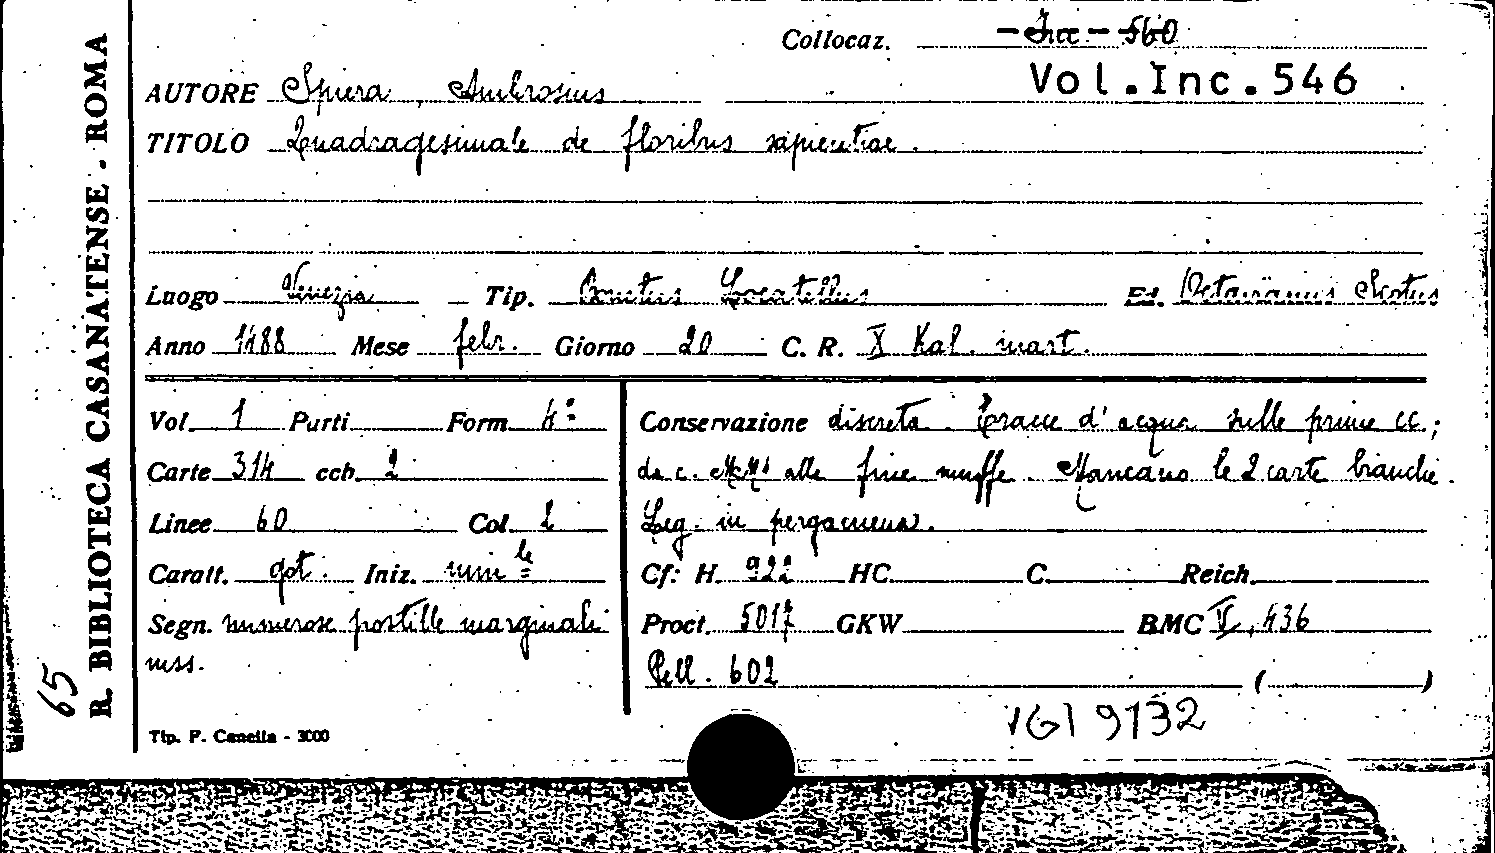 R. BIBLIOTECA CASANATENSE - ROMA
65
Collocaz. - Inc - 560
Vol.Inc.546
AUTORE Spiera, Ambrosius
TITOLO Quadragesimale de floribus sapientiae.
Luogo Venezia Tip. Bonetus Locatellus Ed. Octavianus Scotus
Anno 1488 Mese febr. Giorno 20 C. R. X Kal. mart.
Vol. 1 Parti Form. 4º
Carte 314 ccb. 2
Linee 60 Col. 2
Caratt. got. Iniz. min le
Segn. numerose postille marginali
mss.
Conservazione discreta. Tracce d'acqua sulle prime cc.;
da c. alla fine muffe. Mancano le 2 carte bianche.
Leg. in pergamena.
Cf: H. 922 HC. C. Reich.
Proct. 5017 GKW BMC V, 436
Pell. 602 ( )
IGI 9132
Tip. P. Canella - 3000